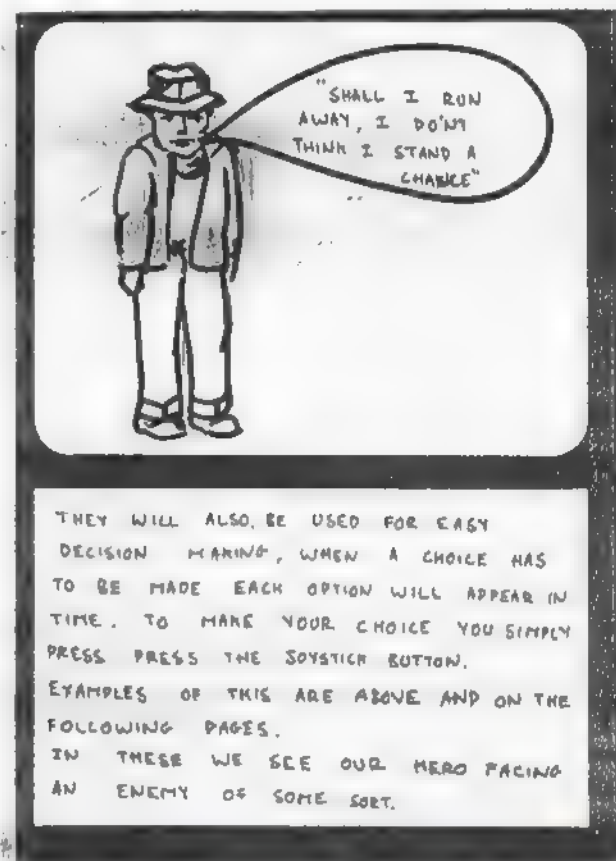 "SHALL I RUN
AWAY, I DO'NT
THINK I STAND A
CHANCE"
THEY WILL ALSO, BE USED FOR EASY
DECISION MAKING, WHEN A CHOICE HAS
TO BE MADE EACH OPTION WILL APPEAR IN
TIME. TO MAKE YOUR CHOICE YOU SIMPLY
PRESS PRESS THE JOYSTICK BUTTON.
EXAMPLES OF THIS ARE ABOVE AND ON THE
FOLLOWING PAGES.
IN THESE WE SEE OUR HERO FACING
AN ENEMY OF SOME SORT.